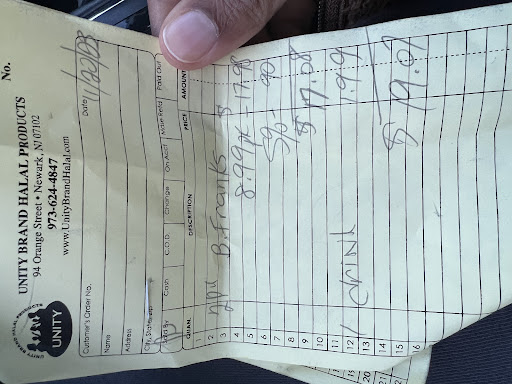 No.
UNITY BRAND HALAL PRODUCTS
94 Orange Street • Newark, NJ 07102
973-624-4847
www.UnityBrandHalal.com
UNITY BRAND HALAL PRODUCTS
UNITY
Customer's Order No.
Date
Name
Address
City, State
Sold By Cash C.O.D. Charge On Acct. Mdse Retd Paid Out
QUAN. DESCRIPTION PRICE AMOUNT
1
2 2pk B. Franks
3 8.99pk $ 17.98
4
5 5% .90
6
7 $ 17.08
8
9
10
11 1.99
12 1 DRINK
13
14 $ 19.07
15
16